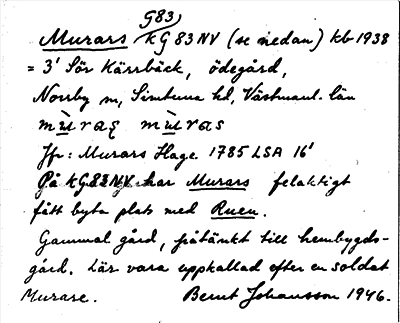 G83)
Murars kG83NV (se nedan) kb 1938
= 3' Sör Kärrbäck, ödegård,
Norrby sn, Simtuna hd, Västmanl. län
mùras mùras
Jfr: Murars Hage 1785 LSA 16'
På kG83NV har Murars felaktigt
fått byta plats med Ruen.
Gammal gård, påtänkt till hembygds-
gård. Lär vara uppkallad efter en soldat
Murare. Bernt Johansson 1946.